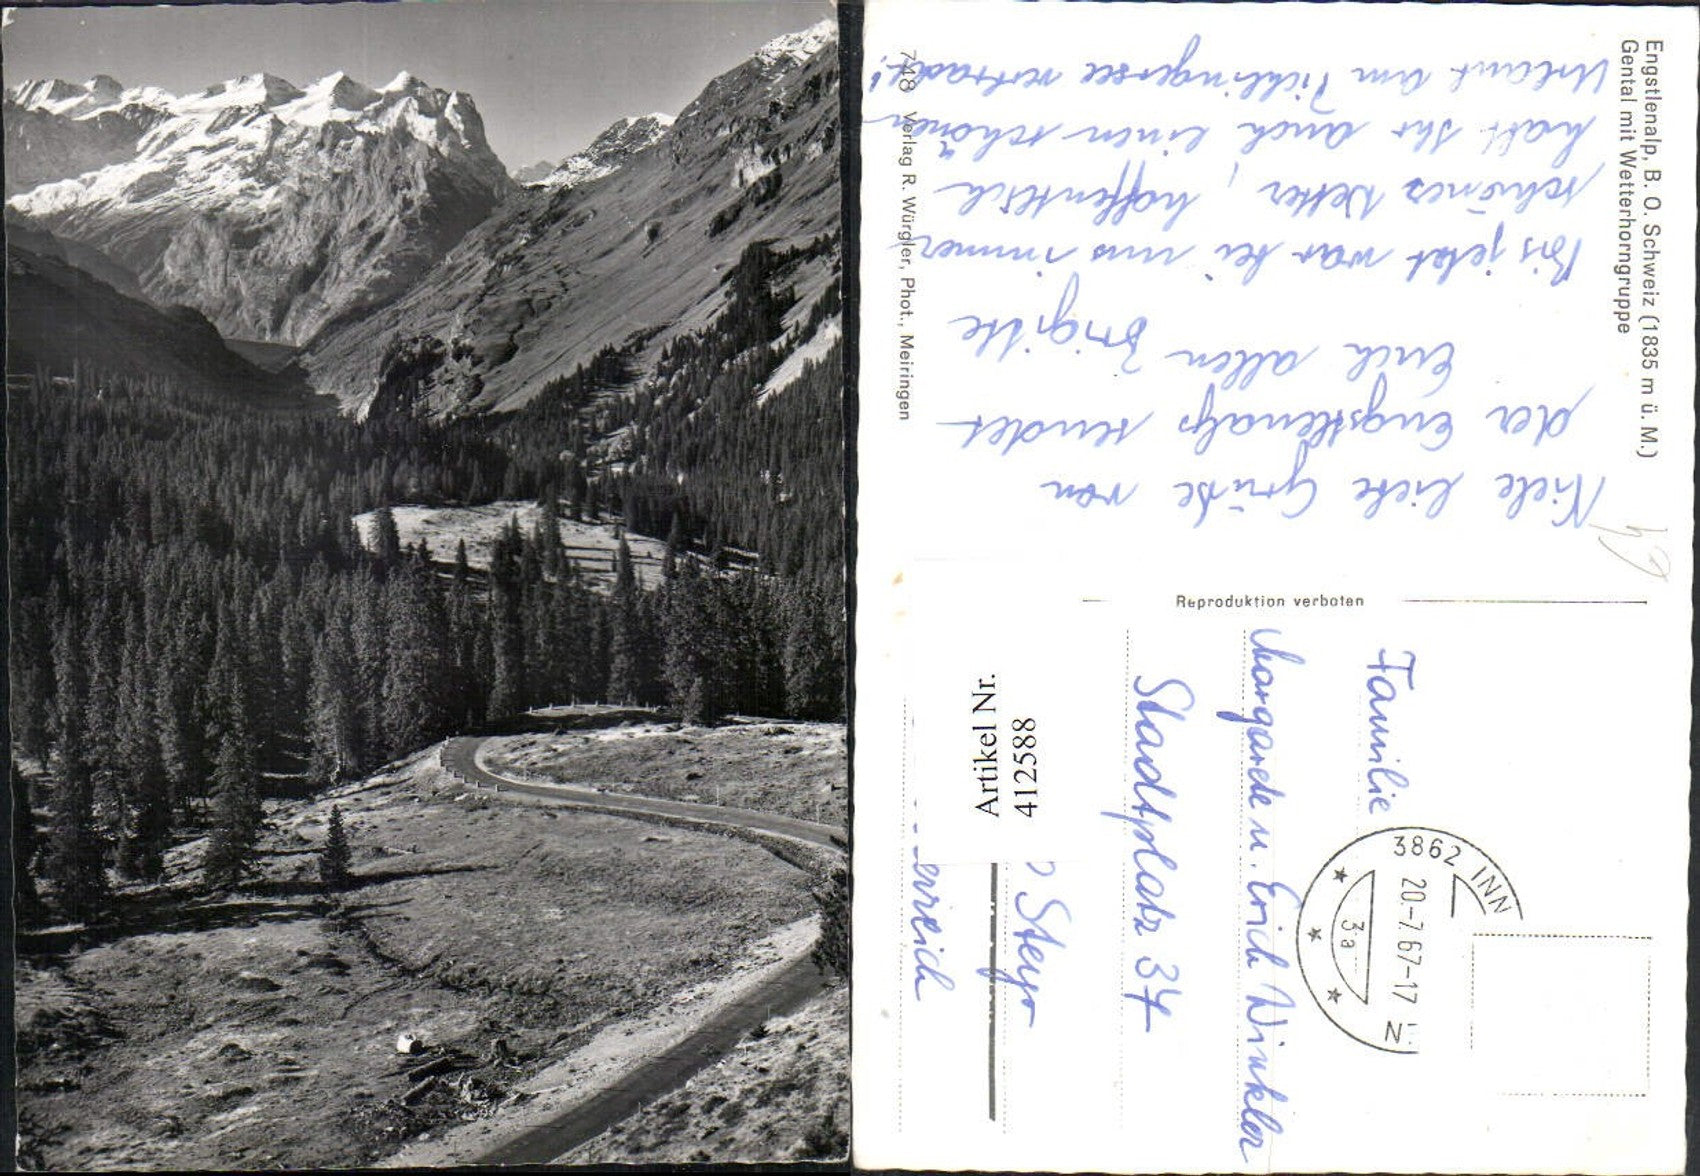 Engstlenalp, B. O. Schweiz (1835 m ü. M.)
Gental mit Wetterhorngruppe
Viele liebe Grüße von
der Engstlenalp sendet
Euch allen Brigitte
Bis jetzt war bei uns immer
schönes Wetter, hoffentlich
habt Ihr auch einen schönen
Urlaub am verbracht!
748 Verlag R. Würgler, Phot., Meiringen
Reproduktion verboten
3862 INN
20.-7.67-17
3a
Familie
Margarete u. Erich Winkler
Stadtplatz 34
Steyr
erreich
Artikel Nr.
412588